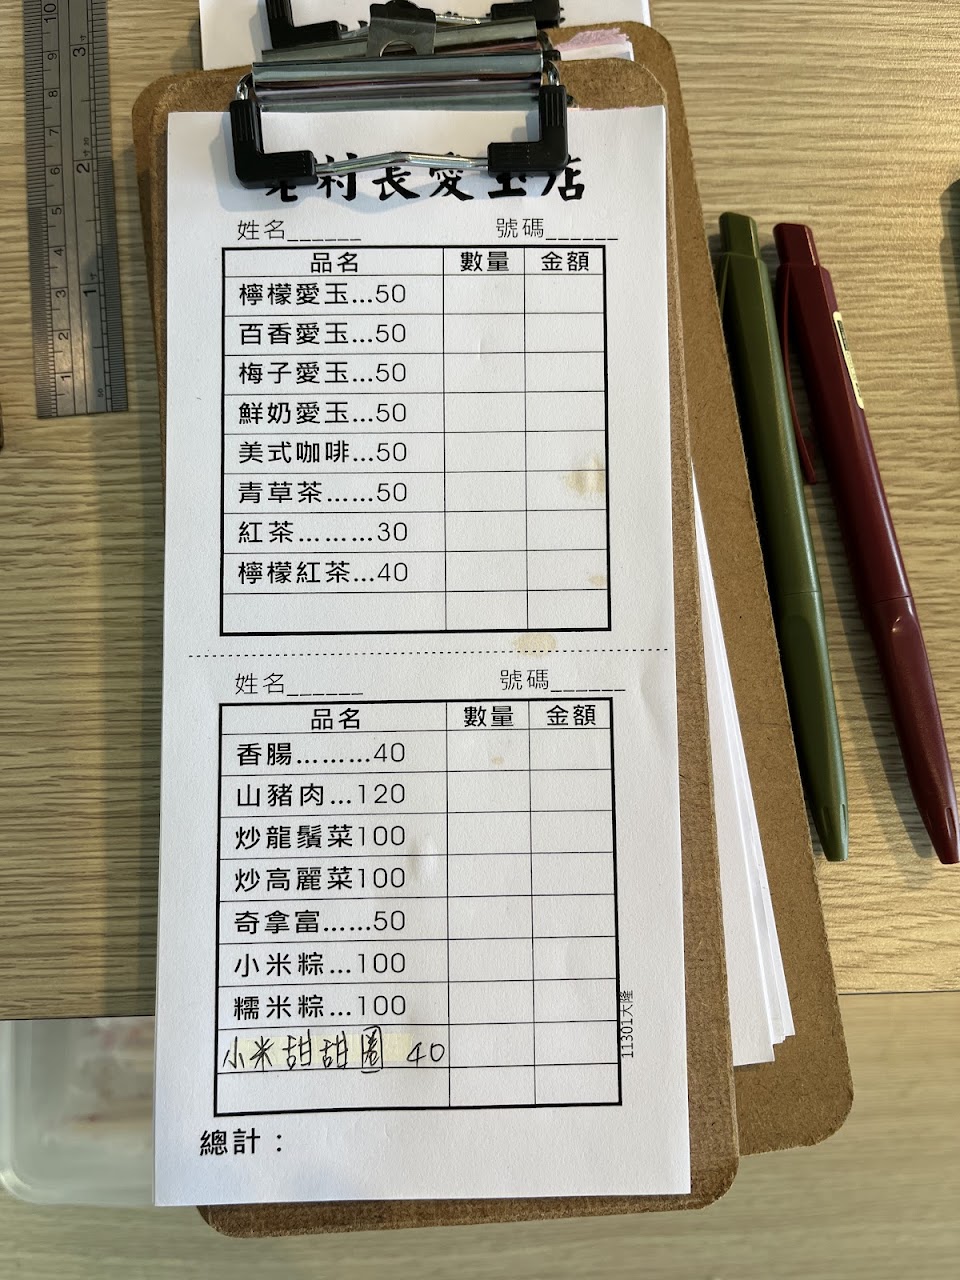 老村長愛玉店
姓名______ 號碼______
品名 數量 金額
檸檬愛玉...50
百香愛玉...50
梅子愛玉...50
鮮奶愛玉...50
美式咖啡...50
青草茶......50
紅茶.........30
檸檬紅茶...40
姓名______ 號碼______
品名 數量 金額
香腸.........40
山豬肉...120
炒龍鬚菜100
炒高麗菜100
奇拿富......50
小米粽...100
糯米粽...100
小米甜甜圈 40
11301大隆
總計：